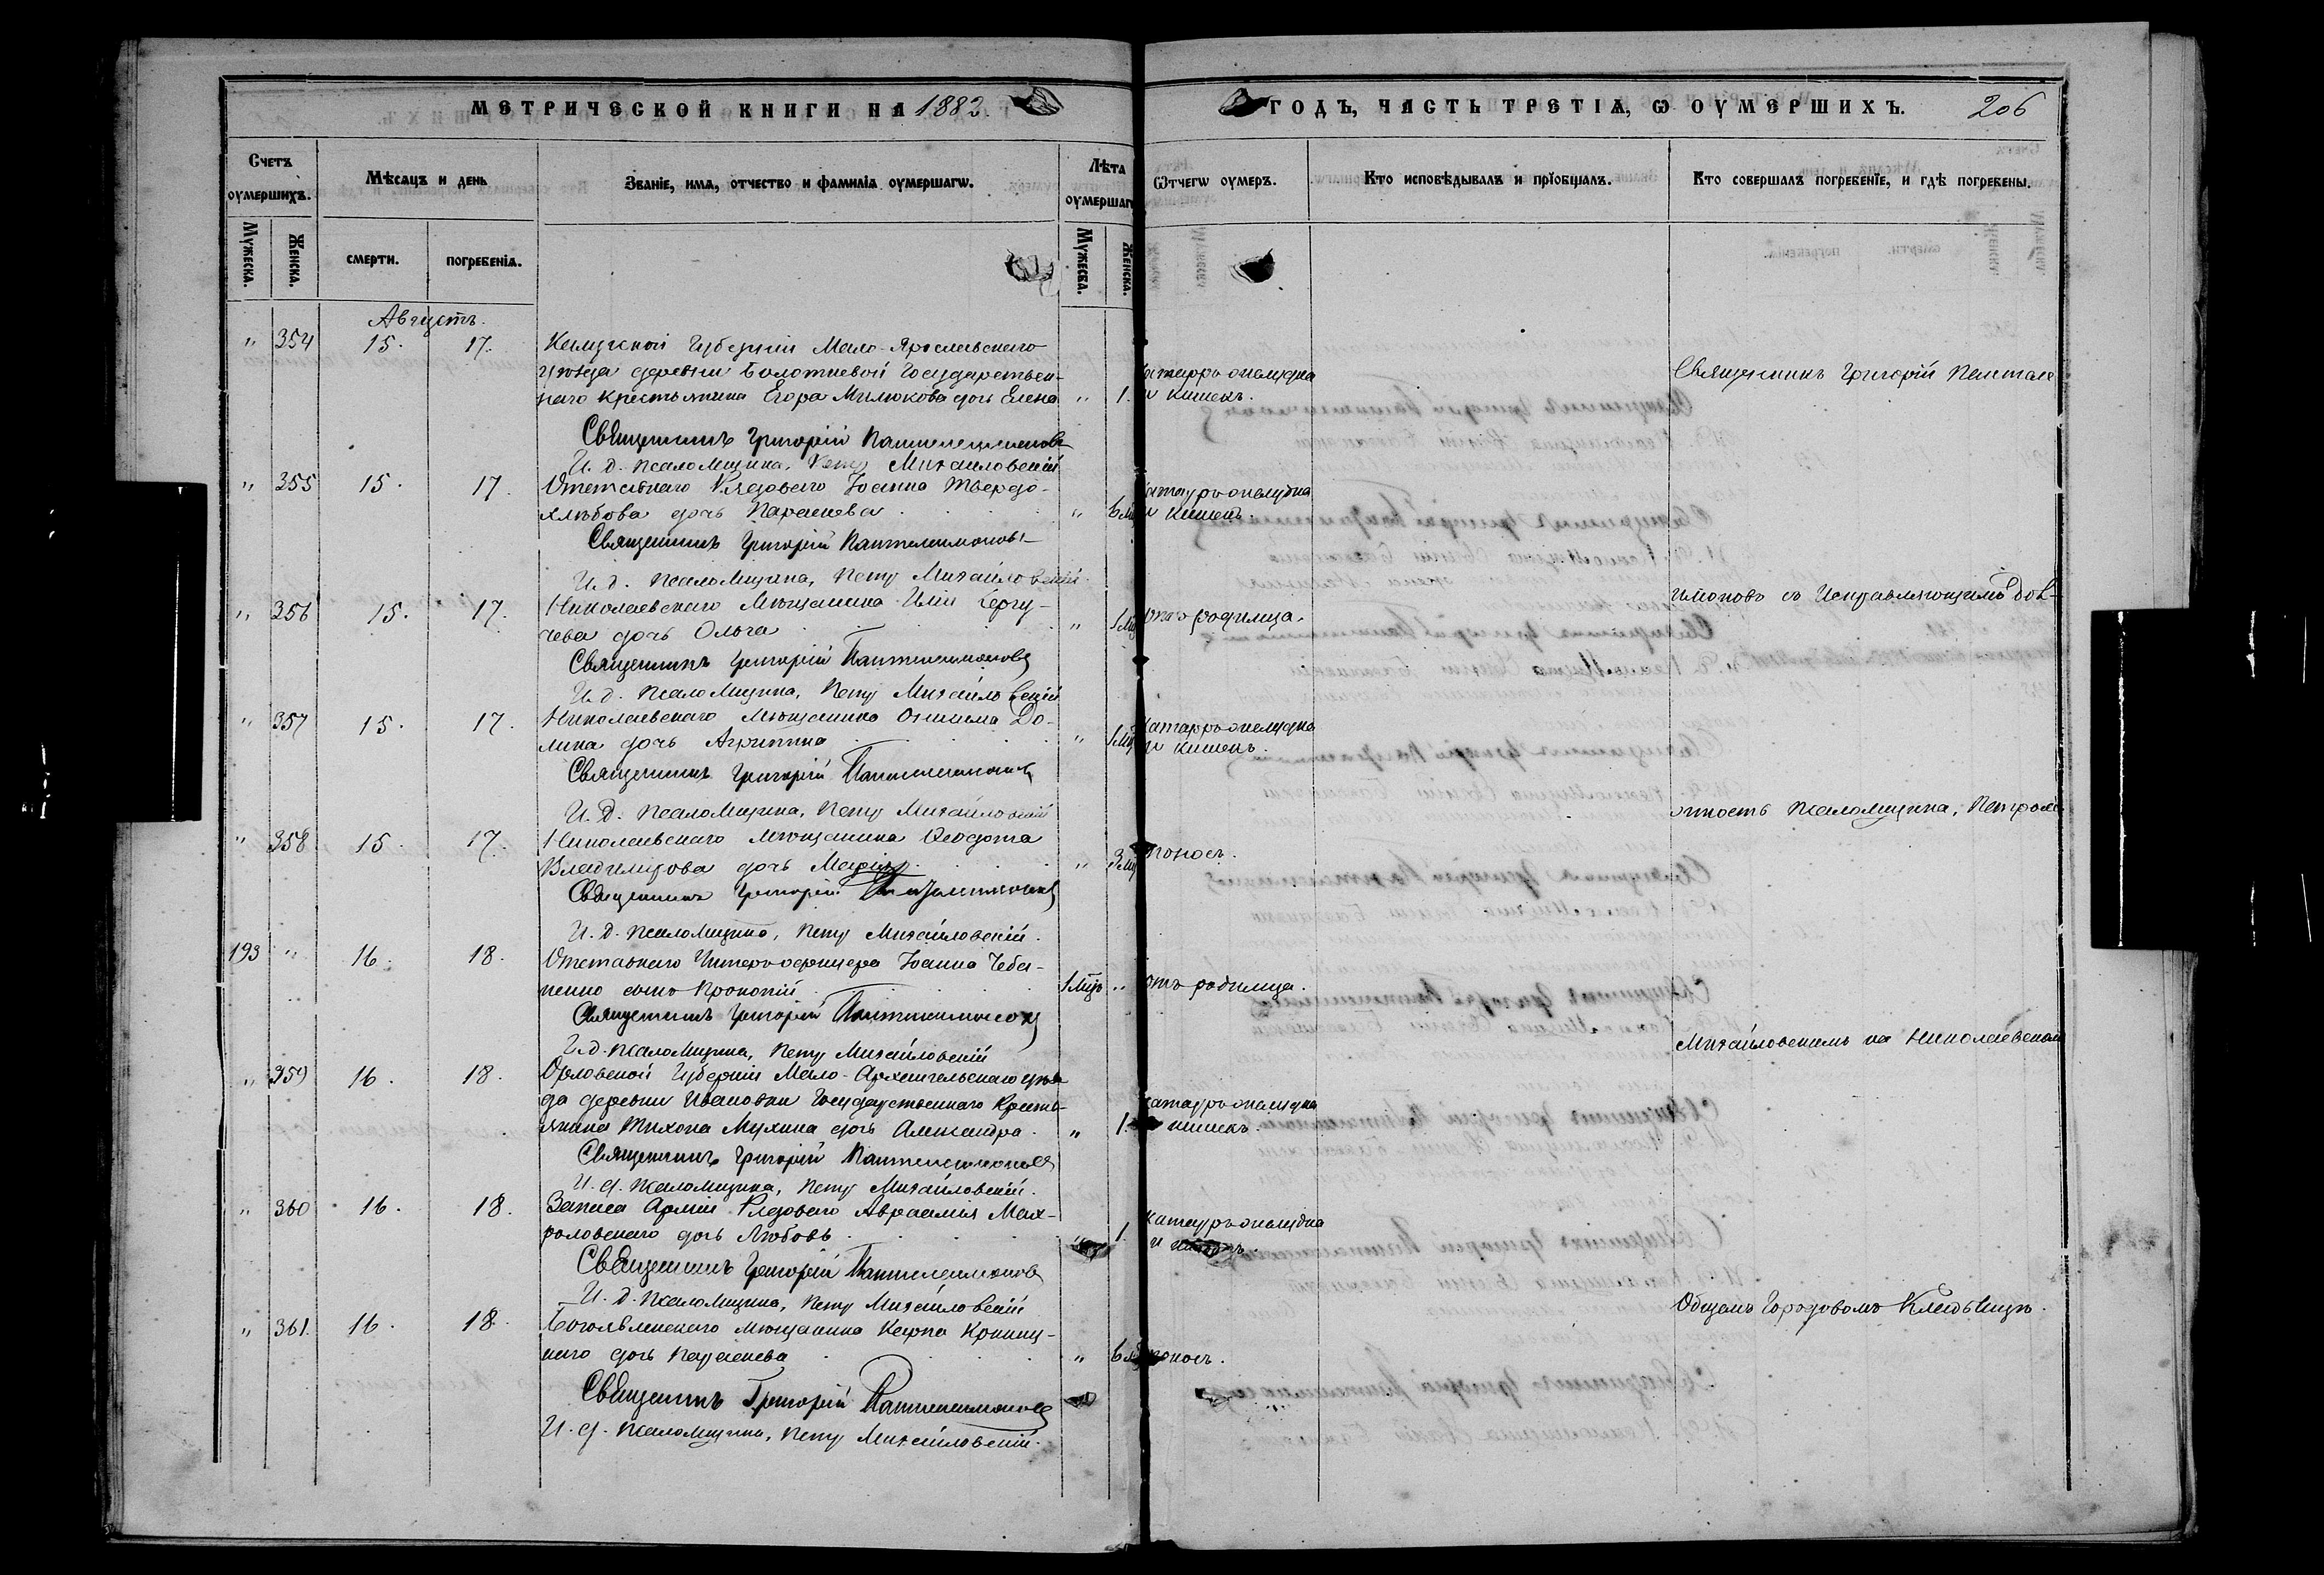 МЕТРИЧЕСКОЙ КНИГИ НА 1882.
ГОДЪ, ЧАСТЬ ТРЕТІѦ, Ѡ ОУМЕРШИХЪ. 206
Счетъ оумершихъ.
Мѣсяцъ и день
Званіе, имѧ, отчество и фамиліѧ оумершагѡ.
Лѣта оумершагѡ
Ѿтчегѡ оумеръ.
Кто исповѣдывалъ и прїобщалъ.
Кто совершалъ погребенїе, и гдѣ погребены.
Мужеска. Женска. смерти. погребенїѧ. Мужеска. Женска.
Августъ.
" 354 15. 17. Калужской Губерніи Мало-Ярославскаго
уѣзда деревни Болотневой Государствен-
наго крестьянина Егора Милюкова дочь Елена " 1. катарръ желудка
и кишекъ.
Священникъ Григорій Пантеле
Священникъ Григорій Пантелеимоновъ
И. д. псаломщика, Петръ Михайловскій
" 355 15. 17. Отставнаго Рядоваго Іоанна Твердо-
хлѣбова дочь Параскева " 6 катарръ желудка
и кишекъ.
Священникъ Григорій Пантелеимоновъ
И. д. псаломщика, Петръ Михайловскій
" 356 15. 17. Николаевскаго Мѣщанина Иліи
чева дочь Ольга " отъ родимца.
имоновъ съ Исправляющимъ дол-
Священникъ Григорій Пантелеимоновъ
И. д. псаломщика, Петръ Михайловскій
" 357 15. 17. Николаевскаго Мѣщанина Онисима До-
лина дочь Агрипина " катарръ желудка
и кишекъ.
Священникъ Григорій Пантелеимоновъ
И. д. псаломщика, Петръ Михайловскій
жность псаломщика, Петромъ
" 358 15. 17. Николаевскаго Мѣщанина Ѳеодота
Владимірова дочь Марія " поносъ.
Священникъ Григорій Пантелеимоновъ
И. д. псаломщика, Петръ Михайловскій.
193 " 16. 18. Отставнаго Унтеръ-офицера Іоанна Чеба-
ненко сынъ Прокопій 1 мцъ " отъ родимца.
Священникъ Григорій Пантелеимоновъ
И. д. псаломщика, Петръ Михайловскій
Михайловскимъ на Николаевскомъ
" 359 16. 18. Орловской Губерніи Мало-Архангельскаго уѣз-
да деревни Ивановки Государственнаго Кресть-
янина Тихона Мухина дочь Александра " 1. катарръ желудка
кишекъ.
Священникъ Григорій Пантелеимоновъ
И. д. псаломщика, Петръ Михайловскій.
" 360 16. 18. Запаса Арміи Рядоваго Авраамія Мах-
роловскаго дочь Любовь 1. катарръ желудка
и
Священникъ Григорій Пантелеимоновъ
И. д. псаломщика, Петръ Михайловскій
Общемъ Городовомъ Кладбищѣ.
" 361. 16. 18. Богоявленскаго мѣщанина Карпа Криниц-
каго дочь Параскева " 6 поносъ.
Священникъ Григорій Пантелеимоновъ
И. д. псаломщика, Петръ Михайловскій.